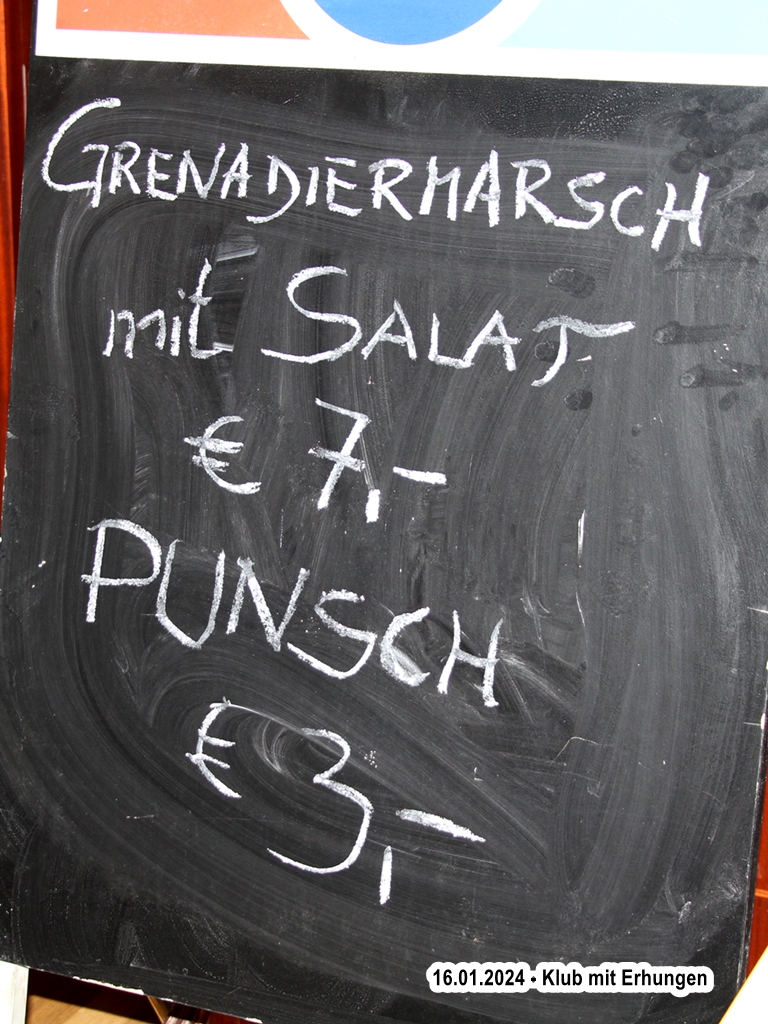 GRENADIERMARSCH
mit SALAT
€ 7,-
PUNSCH
€ 3,-
16.01.2024 • Klub mit Erhungen